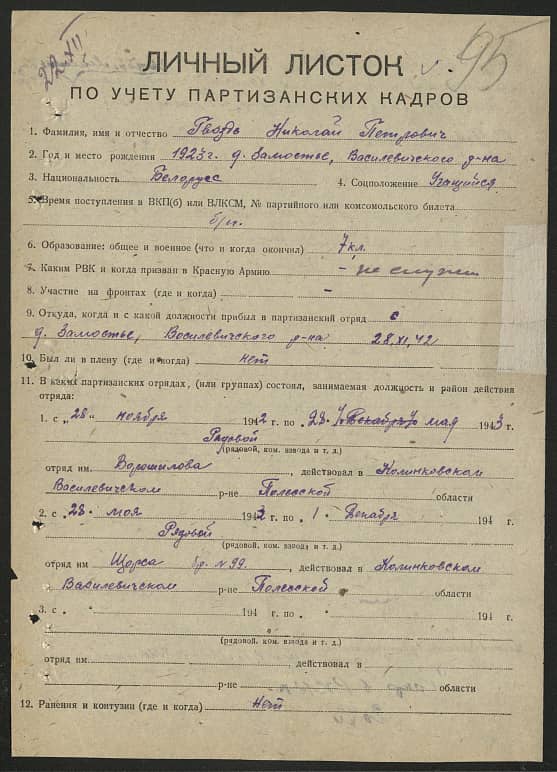 22/XII
95
ЛИЧНЫЙ ЛИСТОК
ПО УЧЕТУ ПАРТИЗАНСКИХ КАДРОВ
1. Фамилия, имя и отчество Гвоздь Николай Петрович
2. Год и место рождения 1923 г. д. Замостье, Василевичского р-на
3. Национальность Белорусс 4. Соцположение Учащийся
5. Время поступления в ВКП(б) или ВЛКСМ, № партийного или комсомольского билета
б/п.
6. Образование: общее и военное (что и когда окончил) 7 кл.
7. Каким РВК и когда призван в Красную Армию - не служил
8. Участие на фронтах (где и когда) -
9. Откуда, когда и с какой должности прибыл в партизанский отряд с
д. Замостье, Василевичского р-на 28.XI.42
10. Был ли в плену (где и когда) нет
11. В каких партизанских отрядах, (или группах) состоял, занимаемая должность и район действия
отряда:
1. с „28" ноября 1942 г. по „28. мая 1943 г.
Рядовой
(рядовой, ком. взвода и т. д.)
отряд им Ворошилова, действовал в Калинковском
Василевичском р-не Полесской области
2. с „28. мая 1943 г. по „1. Декабря 194 г.
Рядовой
(рядовой, ком. взвода и т. д.)
отряд им Щорса бр. №99., действовал в Калинковском
Василевичском р-не Полесской области
3. с „ 194 г. по „ 194 г.
(рядовой, ком. взвода и т. д.)
отряд им. действовал в
р-не области
12. Ранения и контузии (где и когда) Нет